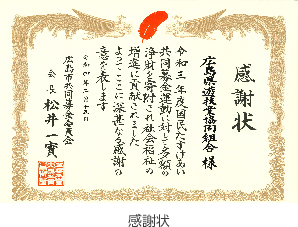 感謝状
広島県遊技業協同組合 様
令和三年度国民たすけあい
共同募金運動に対して多額の
浄財を寄附され社会福祉の
増進に貢献されました
よってここに深甚なる感謝の
意を表します
令和四年二月十六日
広島市共同募金委員会
会長 松井一實
感謝状